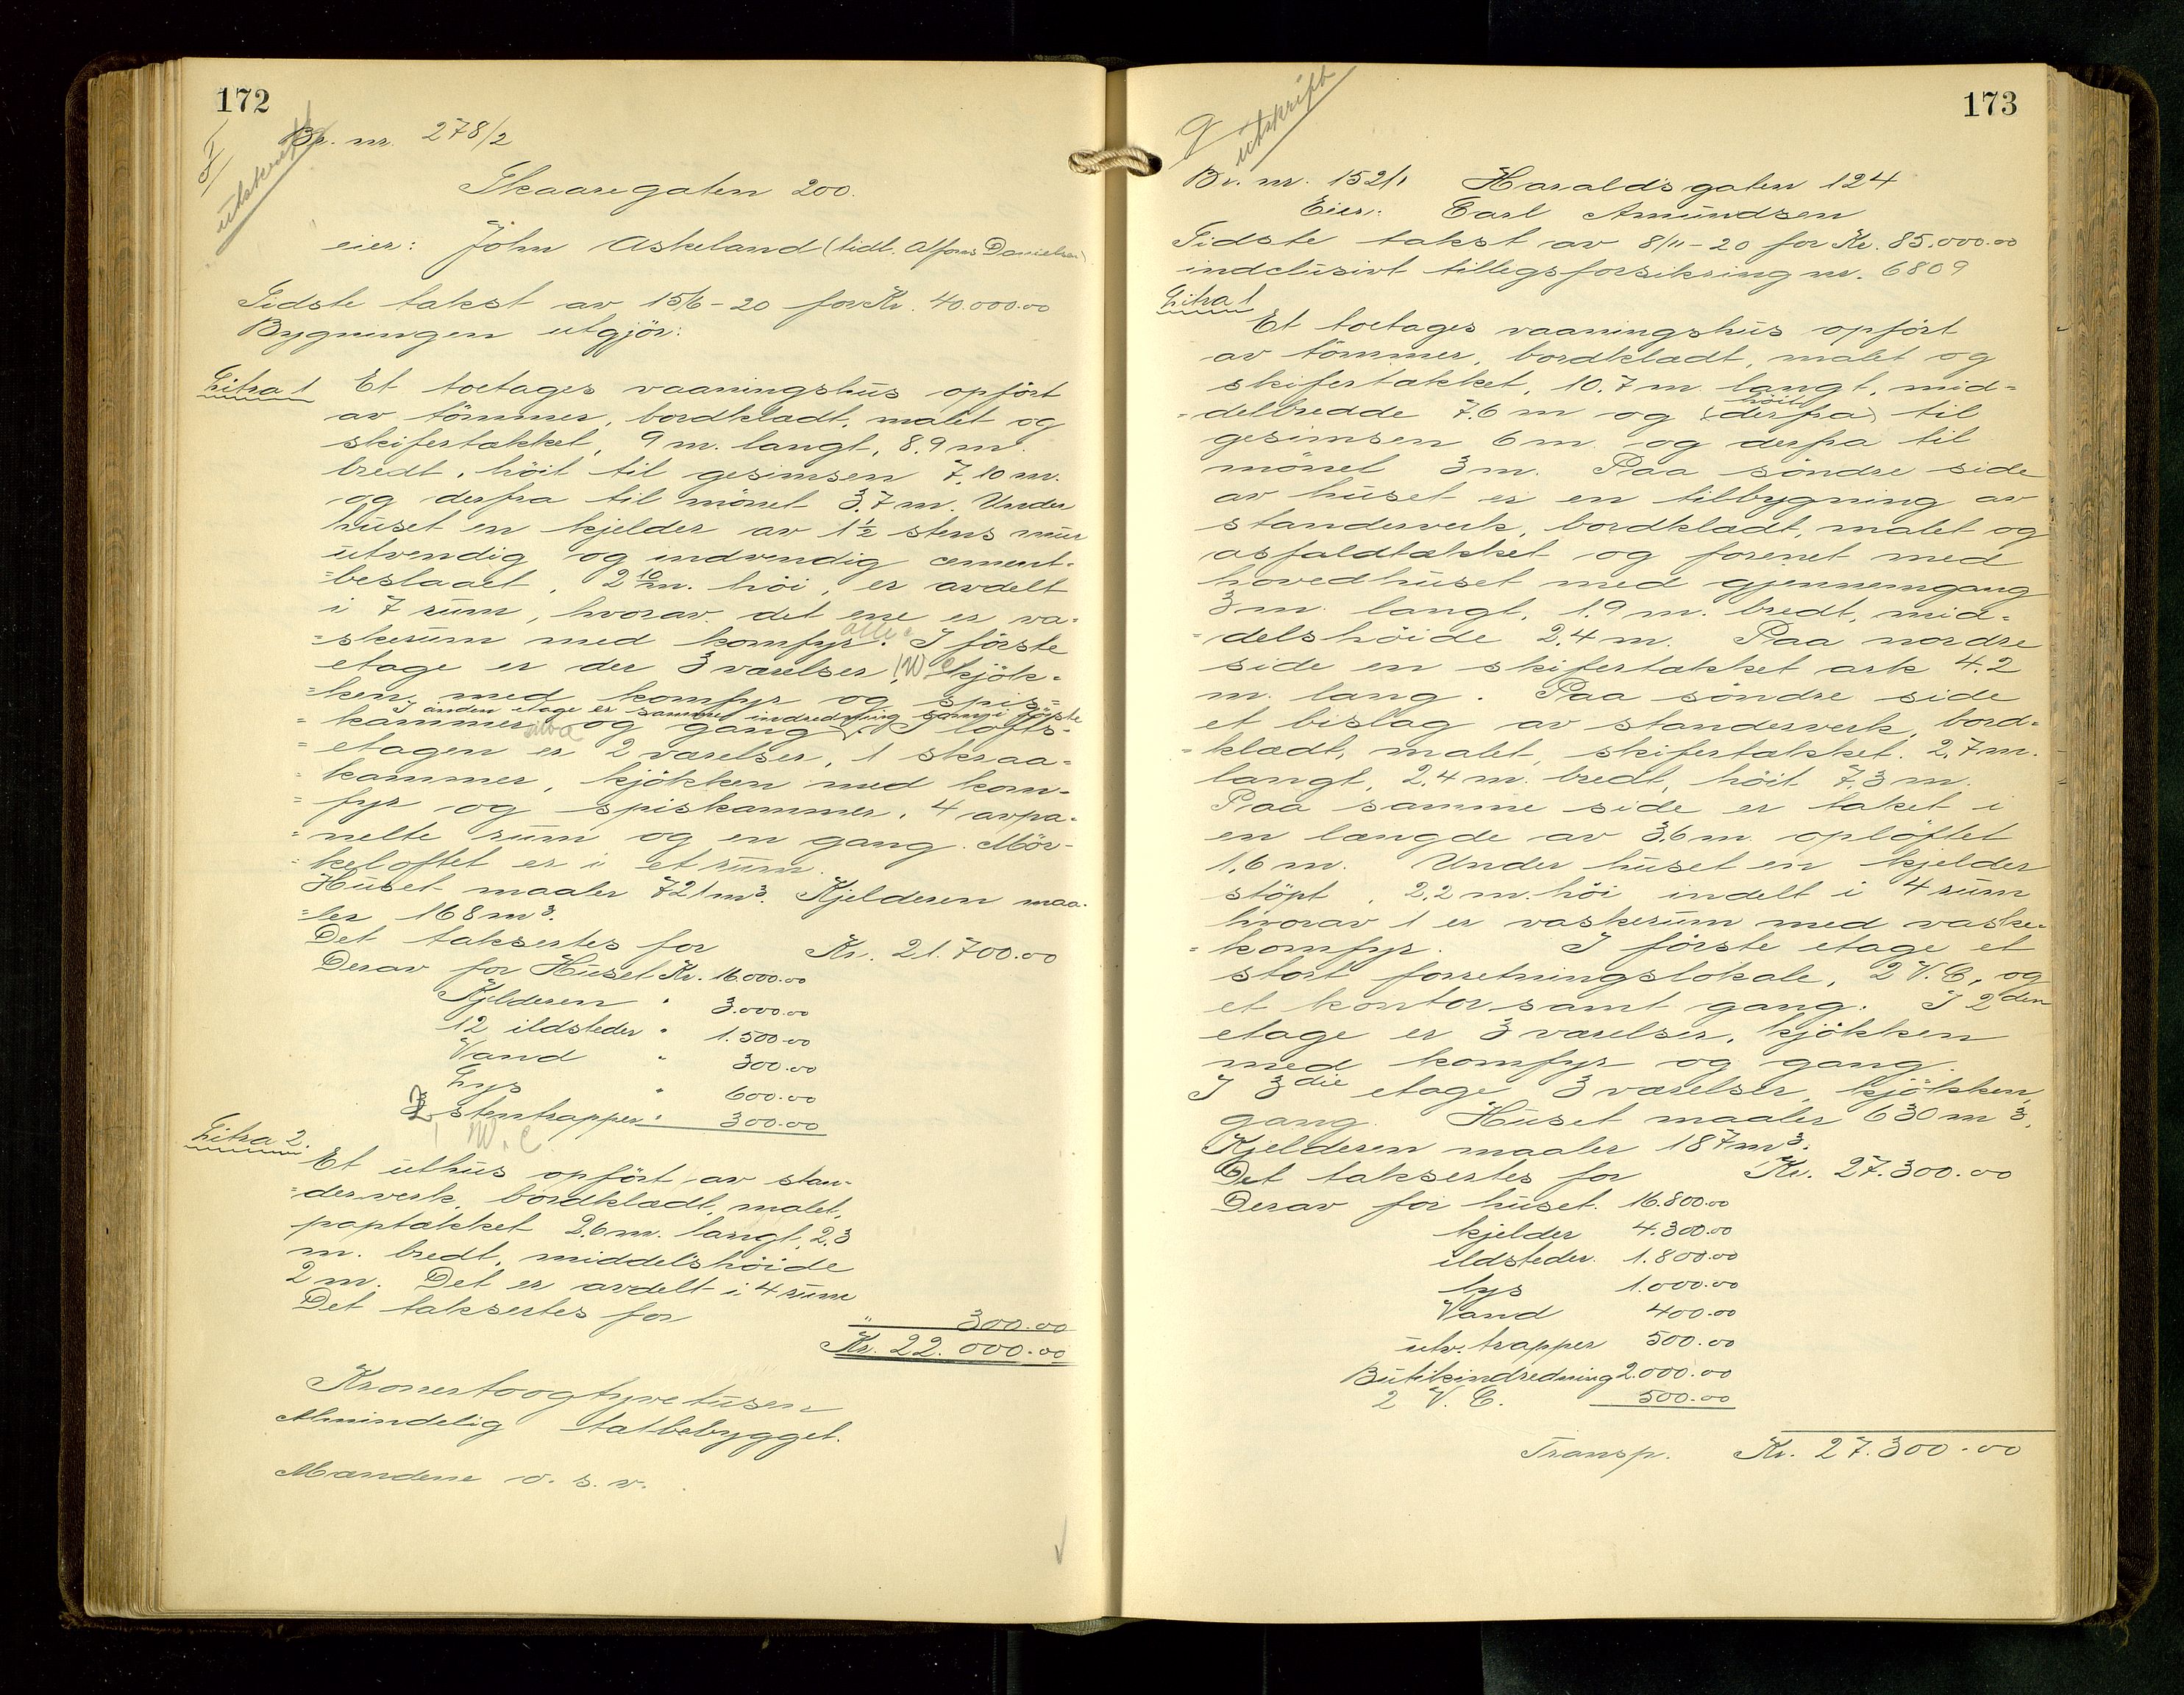 172
utskrift
Br. nr. 278/2
Skaaregaten 200.
eier: John Askeland (tidl. Alfons Danielsen)
Sidste takst av 15/6-20 for Kr. 40.000.00
Bygningen utgjör:
Litra 1 Et toetages vaaningshus opfört
av tömmer, bordklædt, malet og
skifertækket, 9 m. langt, 8.9 m.
bredt, höit til gesimsen 7.10 m.
og derfra til mönet 3.7 m. Under
huset en kjelder av 1½ stens mur
utvendig og indvendig cement-
=beslaaet, 2 10 m. höi, er avdelt
i 7 rum, hvorav det ene er va-
=skerum med komfyr. I förste
etage er der 3 værelser, 1 W C kjök-
=ken med komfyr og spis=
I anden etage er samme indredning som i förste
=kammer og gang. I lofts-
=etagen er 2 værelser, 1 skraa-
=kammer, kjökken med kom-
=fyr og spiskammer. 4 avpa-
=nelte rum og en gang. Mör-
=keloftet er i et rum.
Huset maaler 721 m3. Kjelderen maa-
=ler 168 m3.
Det taksertes for Kr. 21.700.00
Derav for Huset Kr. 16.000.00
Kjelderen " 3.000.00
12 ildsteder " 1.500.00
Vand " 300.00
Lys " 600.00
2 stentrapper " 300.00
1 W. C
Litra 2.
Et uthus opfört av stan-
=derverk, bordklædt, malet,
paptækket 2.6 m. langt, 2.3
m. bredt, middelshöide
2 m. Det er avdelt i 4 rum
Det taksertes for " 300.00
Kr. 22.000.00
Kronertoogtyvetusen
Almindelig tætbebygget.
Mændene o. s. v.
173
utskrift
Br. nr. 152/1 Haraldsgaten 124
Eier: Carl Amundsen
Sidste takst av 8/11-20 for Kr. 85.000.00
indclusivt tillegsforsikring nr. 6809
Litra 1
Et toetages vaaningshus opfört
av tömmer, bordklædt, malet og
skifertækket, 10.7 m langt, mid=
höit
=delbredde 7.6 m og (derfra) til
gesimsen 6 m. og derfra til
mönet 3 m. Paa söndre side
av huset er en tilbygning av
standerverk, bordklædt, malet og
asfaldtækket og forenet med
hovedhuset med gjennemgang
3 m. langt, 1.9 m. bredt, mid=
=delshöide 2.4 m. Paa nordre
side en skifertækket ark 4.2
m. lang. Paa söndre side
et bislag av standerverk, bord=
=klædt, malet, skifertækket. 2.7 m.
langt, 2.4 m. bredt, höit 7.3 m.
Paa samme side er taket i
en længde av 3.6 m. oplöftet
1.6 m. Under huset en kjelder
stöpt, 2.2 m. höi indelt i 4 rum
hvorav 1 er vaskerum med vaske-
=komfyr. I förste etage et
stort forretningslokale, 2 V. C, og
et kontor samt gang. I 2den
etage er 3 værelser, kjökken
med komfyr og gang.
I 3die etage 3 værelser, kjökken,
gang. Huset maaler 630 m3.
Kjelderen maaler 187 m3.
Det taksertes for Kr. 27.300.00
Derav for huset. 16.800.00
kjelder 4.300.00
ildsteder. 1.800.00
lys 1.000.00
Vand 400.00
utv. trapper 500.00
Butikindredning 2.000.00
2 V. C. 500.00
Transp. Kr. 27.300.00